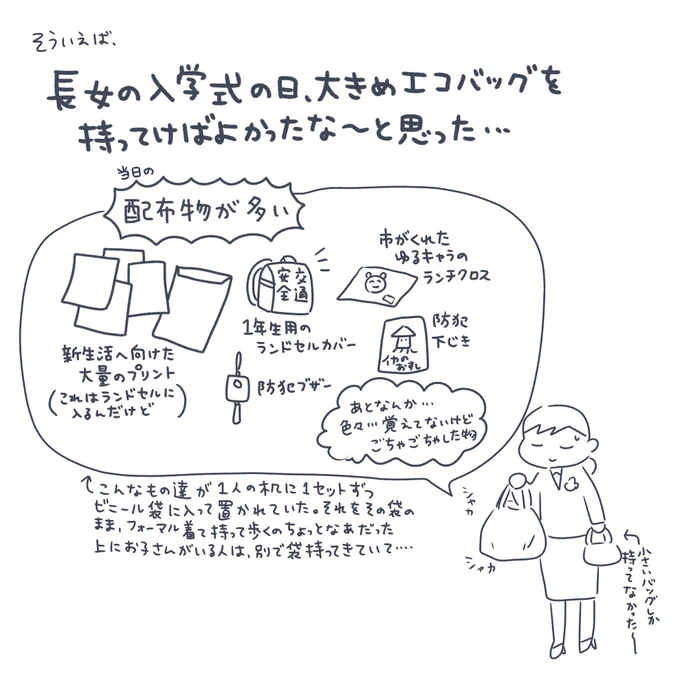 そういえば、
長女の入学式の日、大きめエコバッグを
持ってけばよかったな〜と思った…
当日の
配布物が多い
新生活へ向けた
大量のプリント
(これはランドセルに
入るんだけど)
交通
安全
1年生用の
ランドセルカバー
市がくれた
ゆるキャラの
ランチクロス
防犯ブザー
イカの
おすし
防犯
下じき
あとなんか…
色々…覚えてないけど
ごちゃごちゃした物
↑こんなもの達が1人の机に1セットずつ
ビニール袋に入って置かれていた。それをその袋の
まま、フォーマル着て持って歩くのちょっとなあだった
上にお子さんがいる人は、別で袋持ってきていて….
シャカ
シャカ
小さいバッグしか
持ってなかった〜